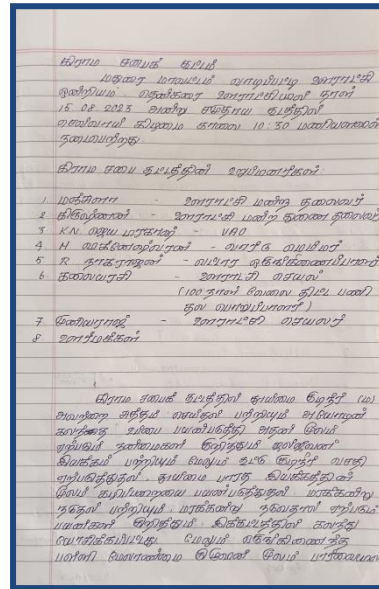 கிராம சபைக் கூட்டம்
மதுரை மாவட்டம் வாடிப்பட்டி ஊராட்சி
ஒன்றியம் தென்கரை ஊராட்சியில் நாள்
15.08.2023 அன்று சமுதாய கூடத்தில்
செவ்வாய் கிழமை காலை 10:30 மணியளவில்
நடைபெற்றது.
கிராம சபை கூட்டத்தின் உறுப்பினர்கள்:
1. மஞ்சுளா - ஊராட்சி மன்ற தலைவர்
2. கிருஷ்ணன் - ஊராட்சி மன்ற துணை தலைவர்
3. KN ஜெய - VAO
4. M - வார்டு மெம்பர்
5. R நாகராஜன் - வட்டார ஒருங்கிணைப்பாளர்
6. கலையரசி - ஊராட்சி செயல்
(100 நாள் வேலை திட்ட பணி
தல பொறுப்பாளர்)
7. முனியராஜ் - ஊராட்சி செயலர்
8. ஊர்மக்கள்
கிராம சபைக் கூட்டத்தில் தூய்மை குடிநீர் (ம)
அவற்றை சுத்தம் செய்தல் பற்றியும் அயோடின்
கலந்த உப்பை பயன்படுத்தி அதன் மூலம்
ஏற்படும் நன்மைகள் குறித்தும் ஜல்ஜீவன்
இயக்கம் பற்றியும் மேலும் கூட்டு குடிநீர் வசதி
ஏற்படுத்துதல், தூய்மை பாரத இயக்கத்தின்
மூலம் கழிப்பறையை பயன்படுத்துதல் மரக்கன்று
நடுதல் பற்றியும் மரக்கன்று நடுவதால் ஏற்படும்
பயன்கள் குறித்தும் இக்கூட்டத்தில் கலந்து
யோசிக்கப்பட்டது. மேலும் ஒருங்கிணைந்த
பள்ளி மேலாண்மை மூலம்